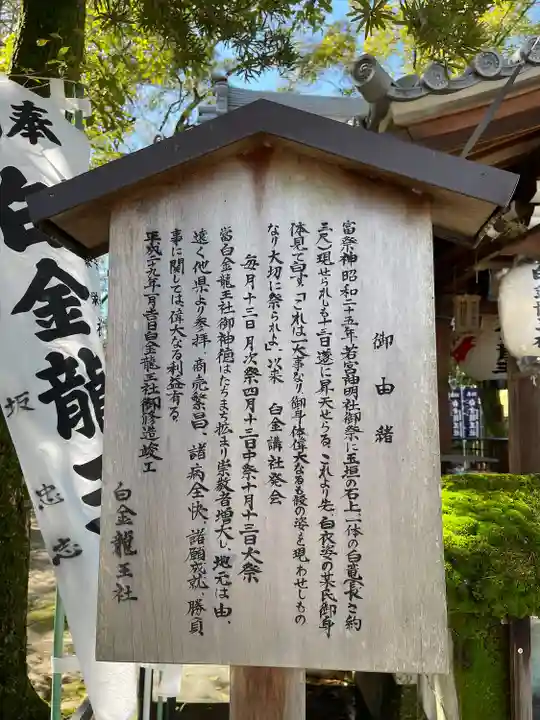 御由緒
當祭神昭和二十五年、若宮神明社御祭に玉垣の石上一体の白竜霊長さ約
三尺に現せられしも十三日遂に昇天せらる、これより先、白衣姿の某氏御身
体見て曰す「これは一大事なり、御身体偉大なるも絞の姿を現わせしもの
なり大切に祭られよ」以来 白金講社発会
毎月十三日月次祭四月十三日中祭十月十三日大祭
當白金龍王社御神徳はたちまち拡まり崇敬者増大し、地元は由、
遠く他県より参拝、商売繁昌、諸病全快、諸願成就、勝負
事に関しては、偉大なる利益有る。
平成二九年一月吉日白金龍王社御修造竣工
白金龍王社
奉
白金龍王
坂
忠志